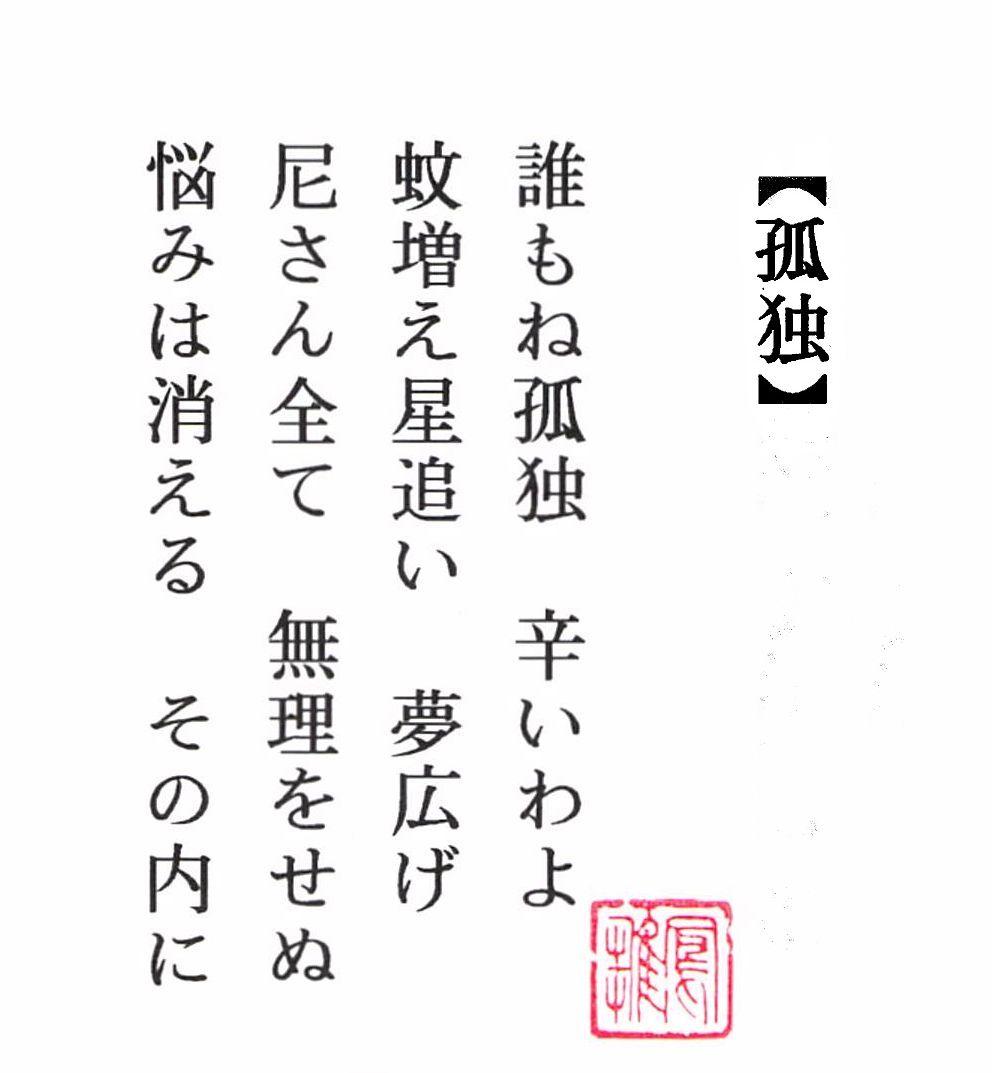 【孤独】
誰もね孤独　辛いわよ
蚊増え星追い　夢広げ
尼さん全て　無理をせぬ
悩みは消える　その内に